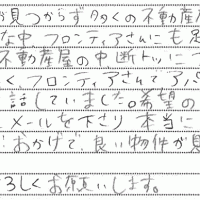 が見つからず多くの不動産屋
な中フロンティアさんにも足
不動産屋の中断トツに
く、フロンティアさんでアパ
話していました。希望の
メールを下さり本当に
おかげで、良い物件が見
ろしくお願いします。